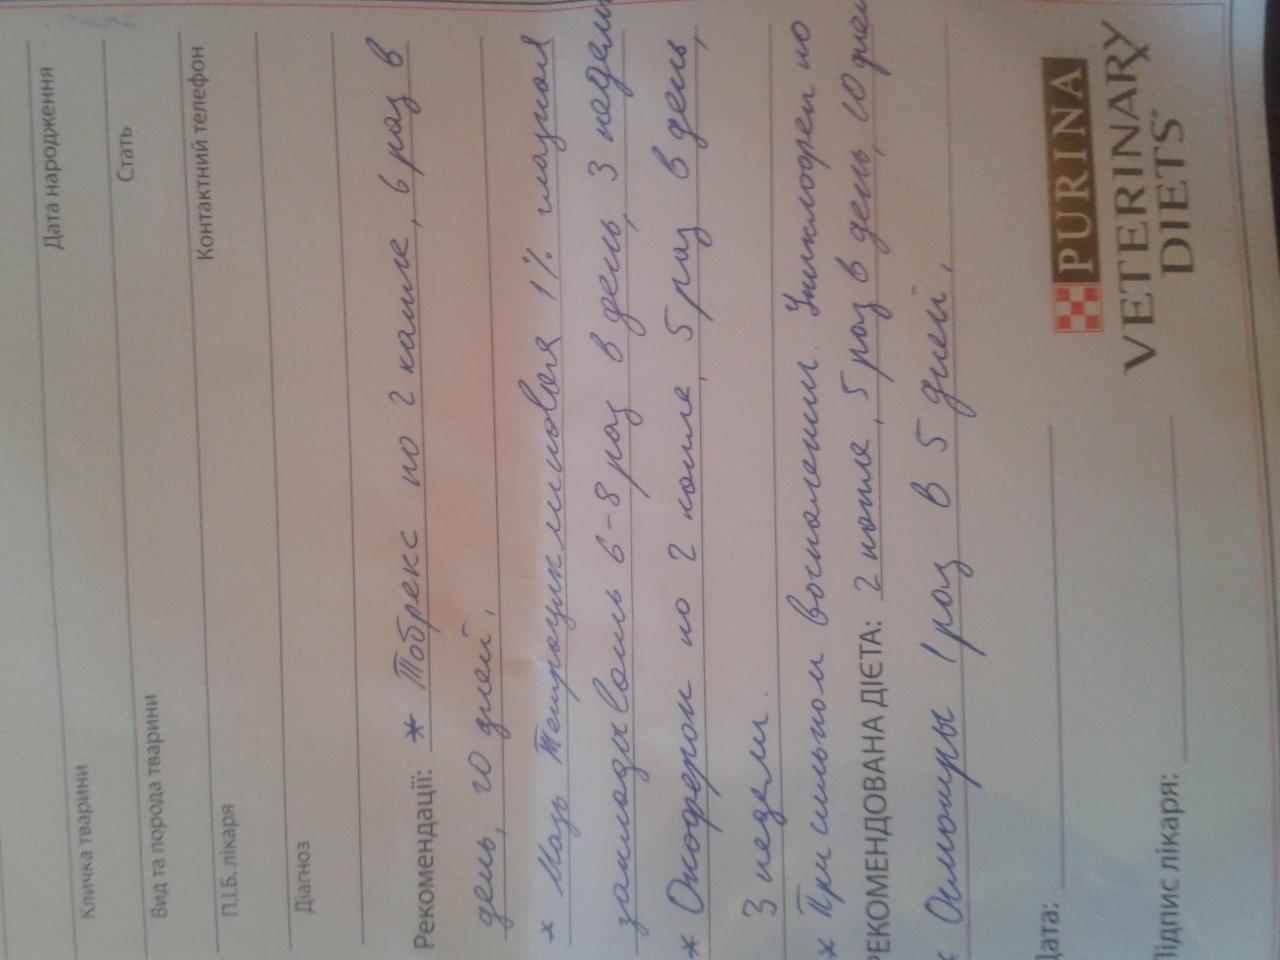 Кличка тварини Дата народження
Вид та порода тварини Стать
П.І.Б. лікаря Контактний телефон
Діагноз
Рекомендації: * Тобрекс по 2 капле, 6 раз в
день, 10 дней,
* Мазь Тетрациклиновая 1% глазная
закладывать 6-8 раз в день, 3 недели
* Окоферон по 2 капле, 5 раз в день,
3 недели.
* При сильном воспалении. Униклофен по
РЕКОМЕНДОВАНА ДІЄТА: 2 капле, 5 раз в день, 10 дней
* Осмотры 1 раз в 5 дней,
Дата:
Підпис лікаря:
PURINA
VETERINARY
DIETS